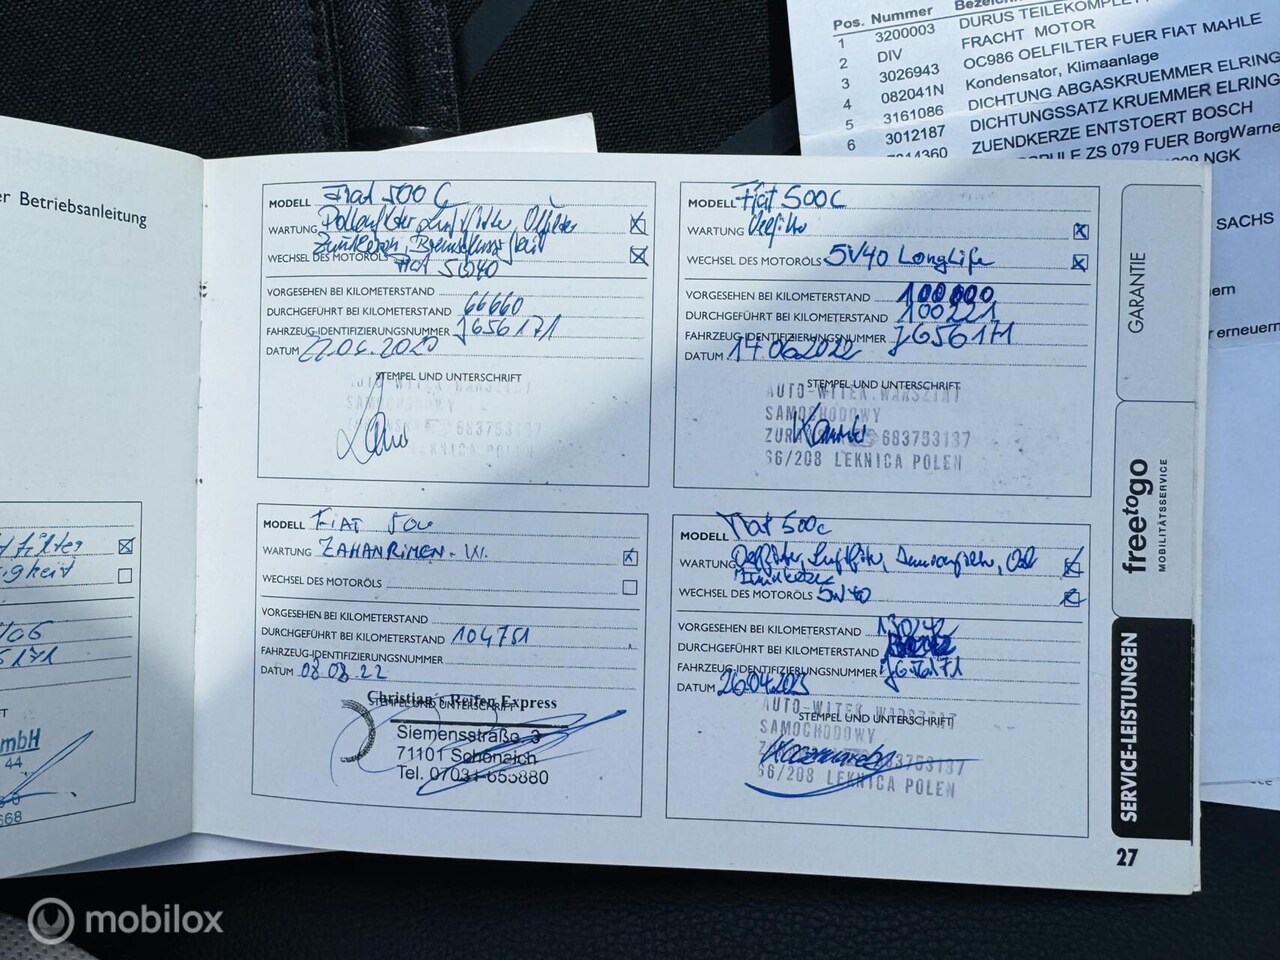 Pos. Nummer
1 3200003 DURUS TEILEKOMPLETT
2 DIV FRACHT MOTOR
3 3026943 OC986 OELFILTER FUER FIAT MAHLE
4 082041N Kondensator, Klimaanlage
5 3161086 DICHTUNG ABGASKRUEMMER ELRING
6 3012187 DICHTUNGSSATZ KRUEMMER ELRING
ZUENDKERZE ENTSTOERT BOSCH
ZS 079 FUER BorgWarne
NGK
SACHS
ern
r erneuern
er Betriebsanleitung
MODELL Fiat 500 C
WARTUNG Pollenfilter Luftfilter, Oelfilter
Zündkerzen, Bremsflüssigkeit
WECHSEL DES MOTORÖLS Fiat 5W40
VORGESEHEN BEI KILOMETERSTAND
DURCHGEFÜHRT BEI KILOMETERSTAND 66660
FAHRZEUG-IDENTIFIZIERUNGSNUMMER J656171
DATUM 22.04.2020
STEMPEL UND UNTERSCHRIFT
AUTO-WITEK WARSZTAT
SAMOCHODOWY
683753137
KNICA POLEN
MODELL Fiat 500C
WARTUNG Oelfilter
WECHSEL DES MOTORÖLS 5W40 LongLife
VORGESEHEN BEI KILOMETERSTAND 100000
DURCHGEFÜHRT BEI KILOMETERSTAND 100221
FAHRZEUG-IDENTIFIZIERUNGSNUMMER J656171
DATUM 14.06.2022
STEMPEL UND UNTERSCHRIFT
AUTO-WITEK WARSZTAT
SAMOCHODOWY
683753137
66/208 LEKNICA POLEN
MODELL FIAT 500
WARTUNG ZAHANRIMEN. W.
WECHSEL DES MOTORÖLS
VORGESEHEN BEI KILOMETERSTAND
DURCHGEFÜHRT BEI KILOMETERSTAND 104751
FAHRZEUG-IDENTIFIZIERUNGSNUMMER
DATUM 08.08.22
STEMPEL UND UNTERSCHRIFT
Christian's Reifen Express
Siemensstraße 3
71101 Schönaich
Tel. 07031-655880
MODELL Fiat 500c
WARTUNG Oelfilter, Luftfilter,
WECHSEL DES MOTORÖLS 5W40
VORGESEHEN BEI KILOMETERSTAND 130242
DURCHGEFÜHRT BEI KILOMETERSTAND
FAHRZEUG-IDENTIFIZIERUNGSNUMMER J656171
DATUM 26.04.2023
STEMPEL UND UNTERSCHRIFT
AUTO-WITEK WARSZTAT
SAMOCHODOWY
683753137
66/208 LEKNICA POLEN
GARANTIE
freetogo
MOBILITÄTSSERVICE
SERVICE-LEISTUNGEN
27
mbH
44
668
mobilox